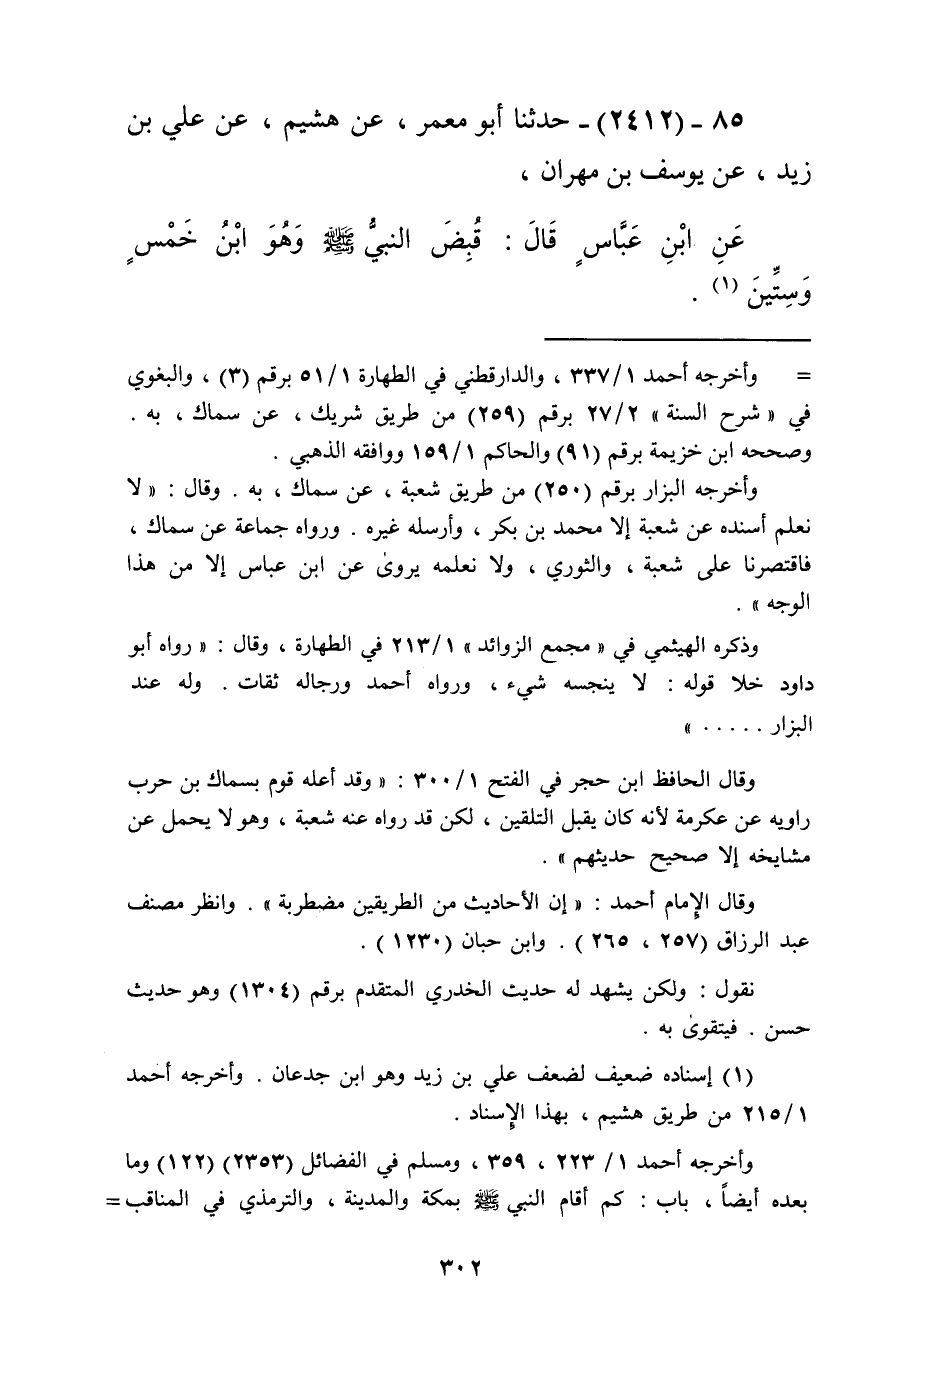 ٨٥ ـ (٢٤١٢) ـ حدثنا أبو معمر ، عن هشيم ، عن علي بن
زيد ، عن يوسف بن مهران ،
عَنِ ابْنِ عَبَّاسٍ قَالَ : قُبِضَ النبيُّ ﷺ وَهُوَ ابْنُ خَمْسٍ
وَسِتِّينَ (١) .
= وأخرجه أحمد ٣٣٧/١ ، والدارقطني في الطهارة ٥١/١ برقم (٣) ، والبغوي
في « شرح السنة » ٢٧/٢ برقم (٢٥٩) من طريق شريك ، عن سماك ، به .
وصححه ابن خزيمة برقم (٩١) والحاكم ١٥٩/١ ووافقه الذهبي .
وأخرجه البزار برقم (٢٥٠) من طريق شعبة ، عن سماك ، به . وقال : « لا
نعلم أسنده عن شعبة إلا محمد بن بكر ، وأرسله غيره . ورواه جماعة عن سماك ،
فاقتصرنا على شعبة ، والثوري ، ولا نعلمه يروىٰ عن ابن عباس إلا من هذا
الوجه » .
وذكره الهيثمي في « مجمع الزوائد » ٢١٣/١ في الطهارة ، وقال : « رواه أبو
داود خلا قوله : لا ينجسه شيء ، ورواه أحمد ورجاله ثقات . وله عند
البزار ..... »
وقال الحافظ ابن حجر في الفتح ٣٠٠/١ : « وقد أعله قوم بسماك بن حرب
راويه عن عكرمة لأنه كان يقبل التلقين ، لكن قد رواه عنه شعبة ، وهو لا يحمل عن
مشايخه إلا صحيح حديثهم » .
وقال الإمام أحمد : « إن الأحاديث من الطريقين مضطربة » . وانظر مصنف
عبد الرزاق (٢٥٧ ، ٢٦٥ ) . وابن حبان (١٢٣٠ ) .
نقول : ولكن يشهد له حديث الخدري المتقدم برقم (١٣٠٤) وهو حديث
حسن . فيتقوىٰ به .
(١) إسناده ضعيف لضعف علي بن زيد وهو ابن جدعان . وأخرجه أحمد
٢١٥/١ من طريق هشيم ، بهذا الإسناد .
وأخرجه أحمد ١/ ٢٢٣ ، ٣٥٩ ، ومسلم في الفضائل (٢٣٥٣) (١٢٢) وما
بعده أيضاً ، باب : كم أقام النبي ﷺ بمكة والمدينة ، والترمذي في المناقب =
٣٠٢